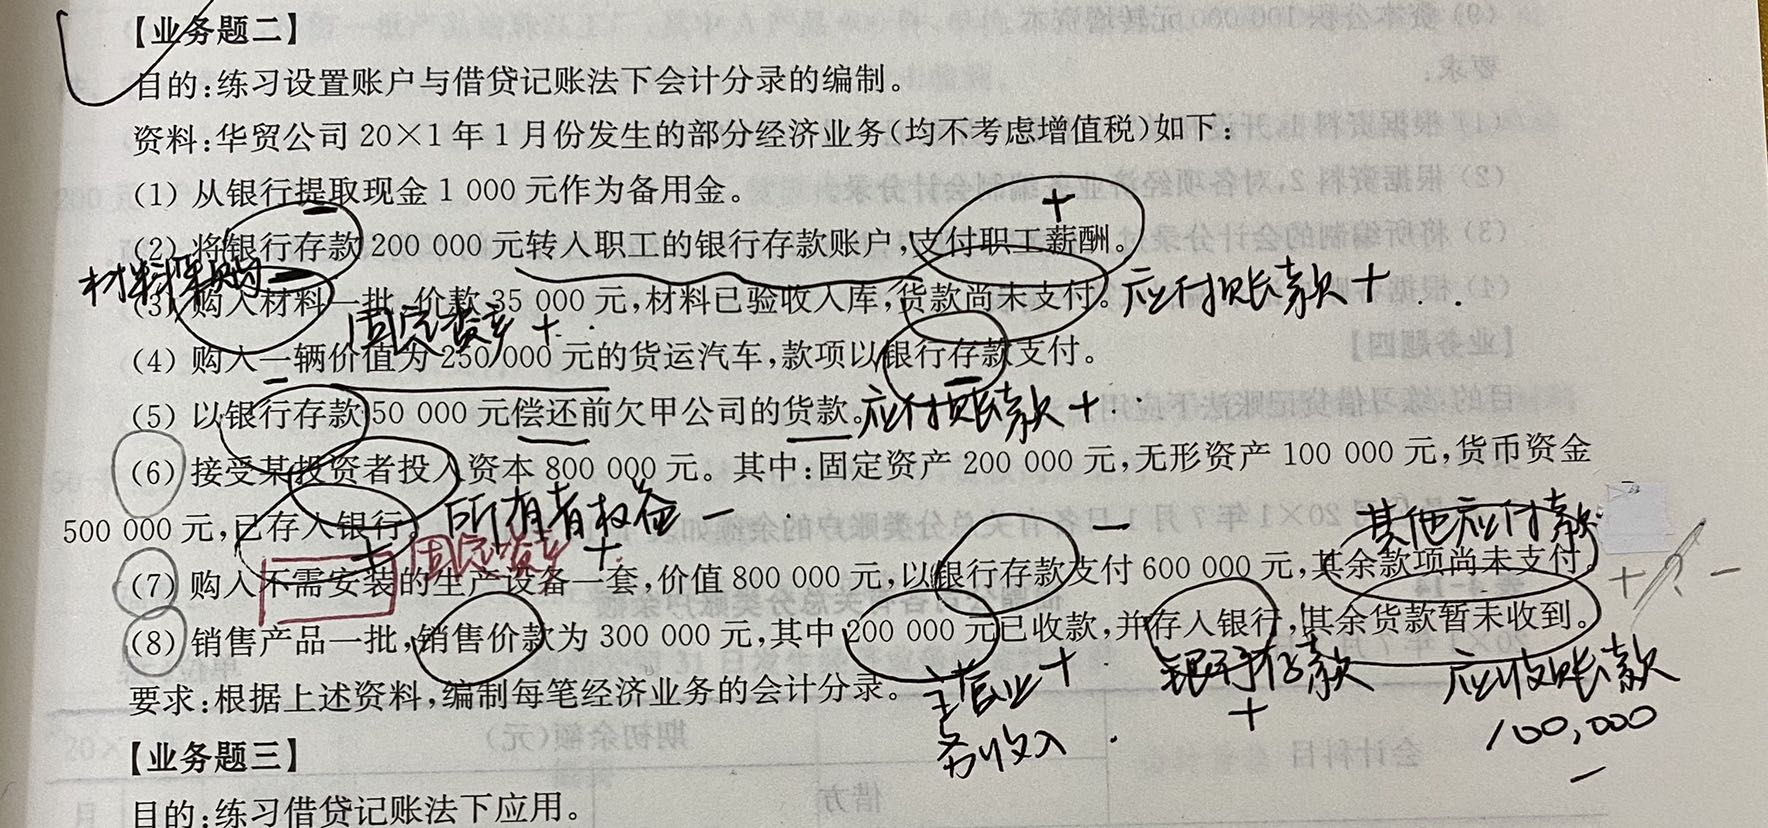 【业务题二】
目的:练习设置账户与借贷记账法下会计分录的编制。
资料:华贸公司 20×1 年 1 月份发生的部分经济业务(均不考虑增值税)如下:
(1) 从银行提取现金 1 000 元作为备用金。
+
(2) 将银行存款 200 000 元转入职工的银行存款账户,支付职工薪酬。
材料采购
(3) 购入材料一批,价款 35 000 元,材料已验收入库,货款尚未支付。应付账款 +
固定资产 +
(4) 购入一辆价值为 250 000 元的货运汽车,款项以银行存款支付。
(5) 以银行存款 50 000 元偿还前欠甲公司的货款。应付账款 +
(6) 接受某投资者投入资本 800 000 元。其中:固定资产 200 000 元,无形资产 100 000 元,货币资金
500 000 元,已存入银行。所有者权益 -
固定资产 +
- 其他应付款
(7) 购入不需安装的生产设备一套,价值 800 000 元,以银行存款支付 600 000 元,其余款项尚未支付。
+ ? -
(8) 销售产品一批,销售价款为 300 000 元,其中 200 000 元已收款,并存入银行,其余货款暂未收到。
要求:根据上述资料,编制每笔经济业务的会计分录。
主营业务收入 +
银行存款 +
应收账款
100,000
-
【业务题三】
目的:练习借贷记账法下应用。